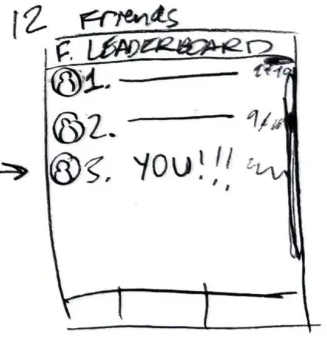 12 Friends
F. LEADERBOARD
1.
2.
3. YOU!!!